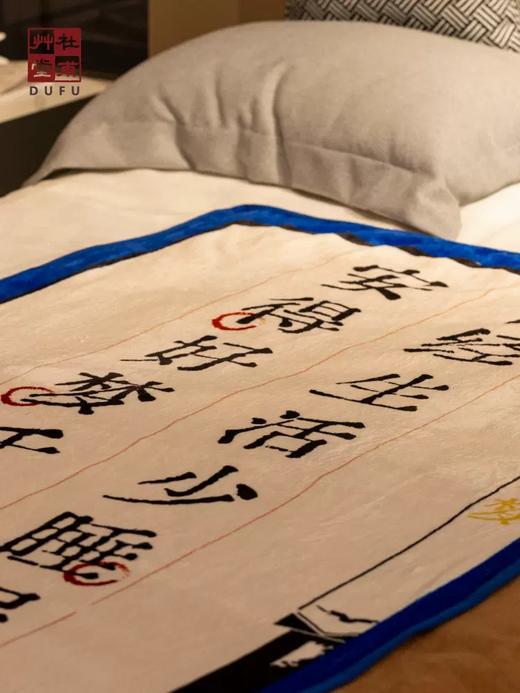 杜甫
艸堂
DUFU
生活少睡
安得好梦